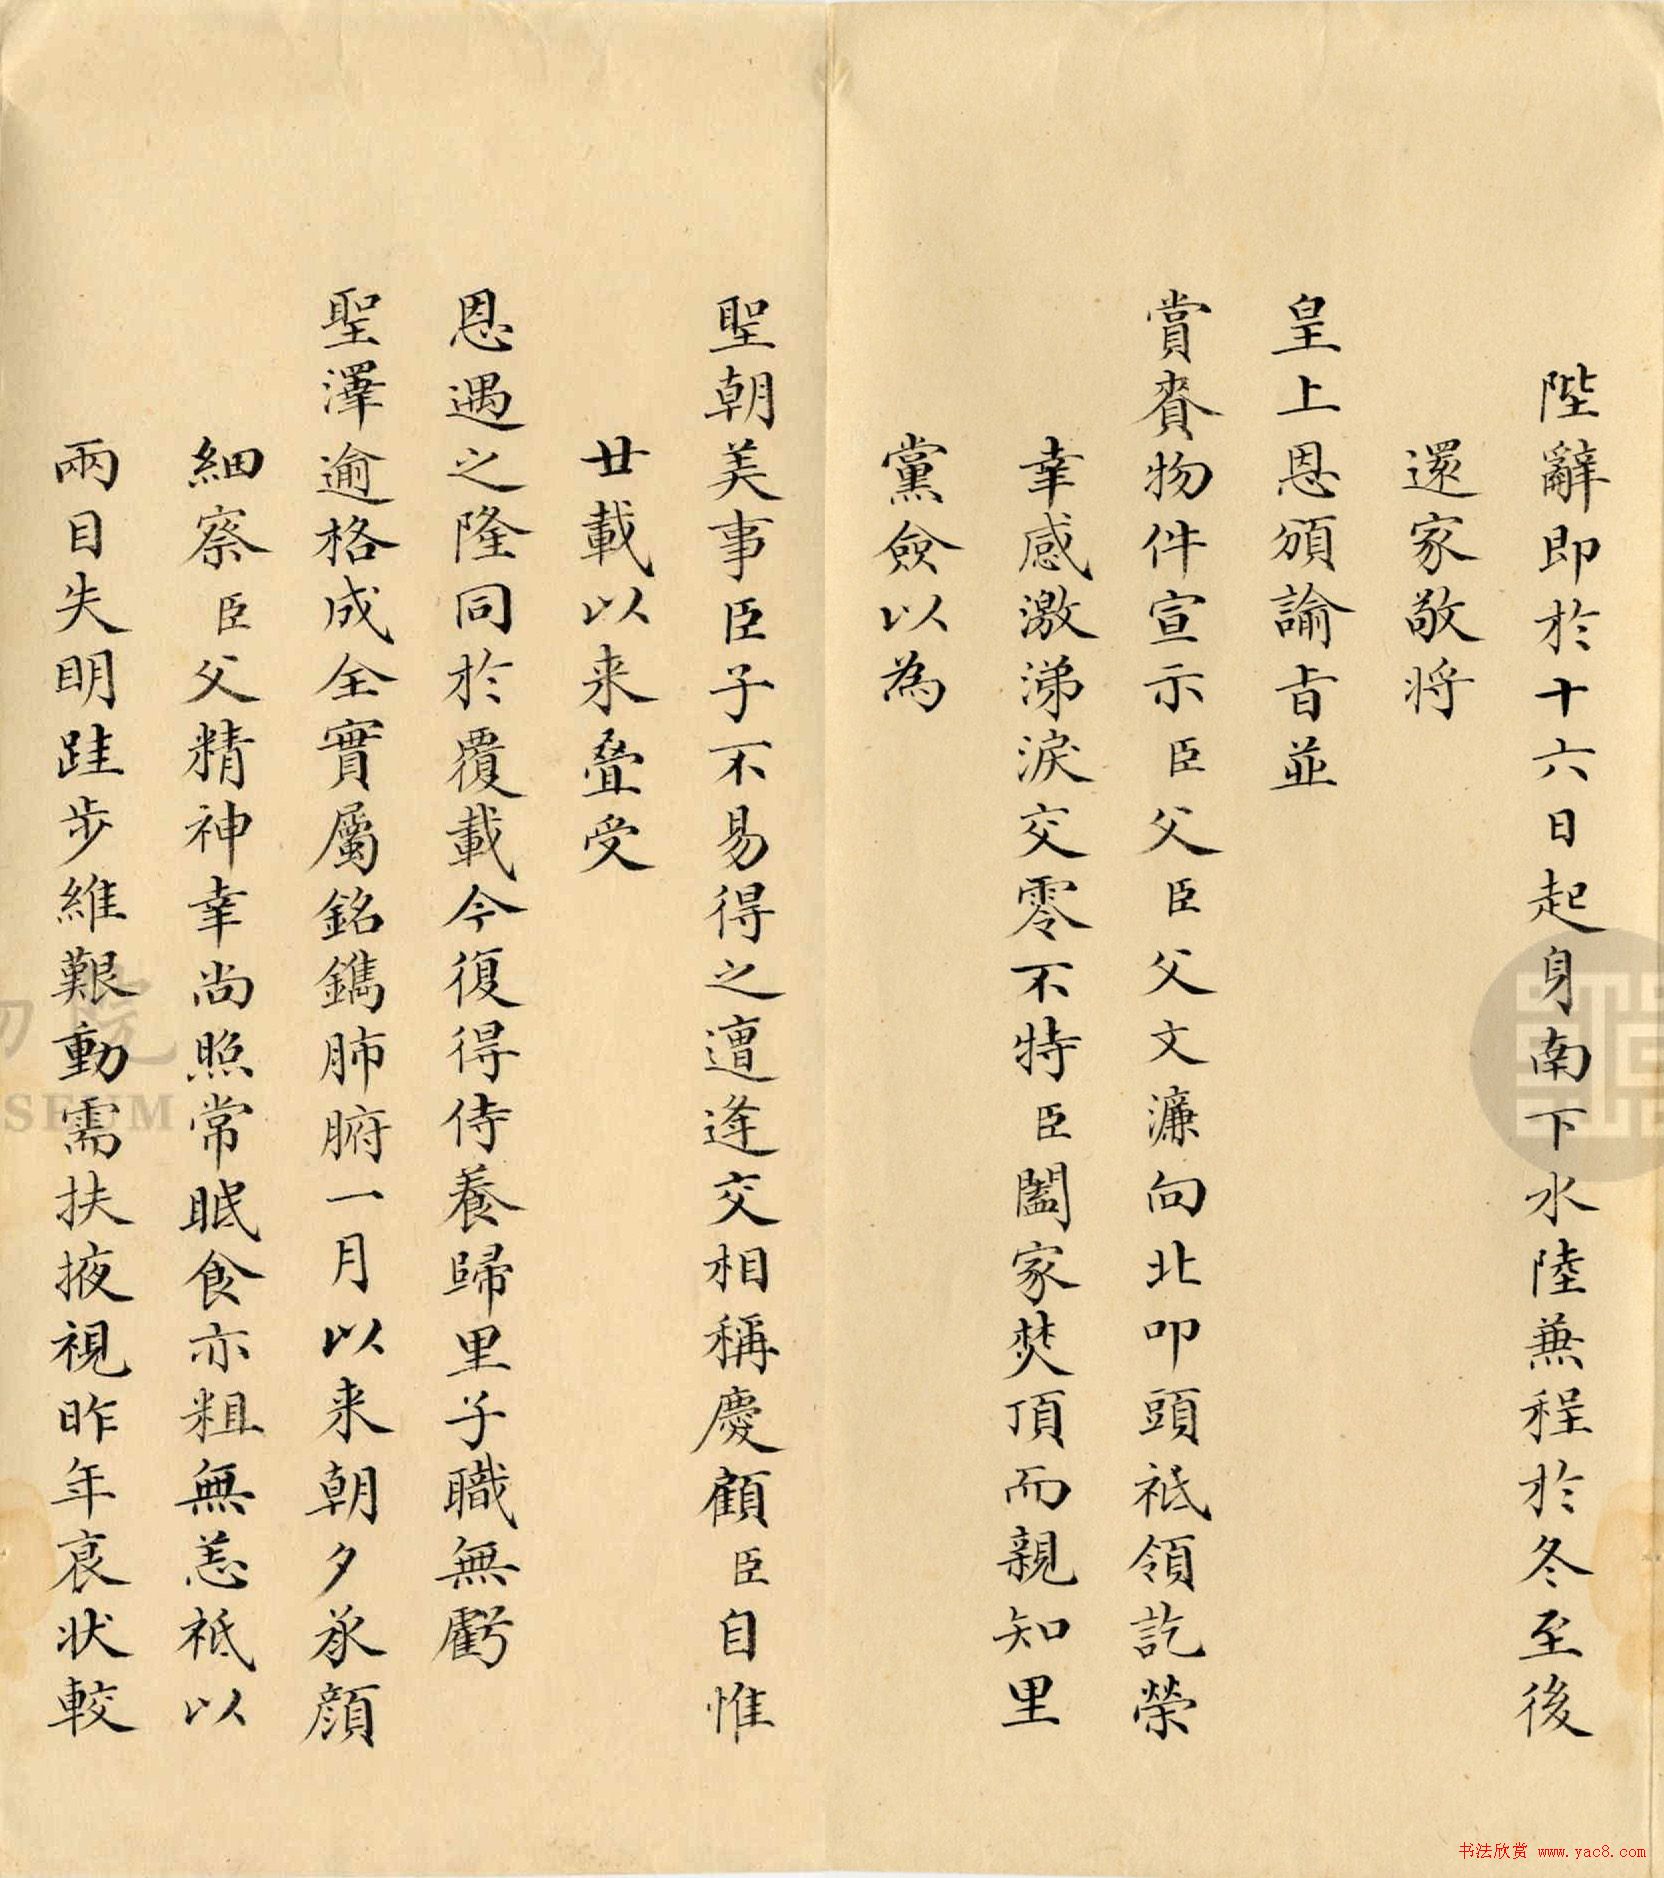 陛辭即於十六日起身南下水陸兼程於冬至後
還家敬將
皇上恩頒諭旨並
賞賚物件宣示臣父臣父文濂向北叩頭祗領訖榮
幸感激涕淚交零不特臣闔家焚頂而親知里
黨僉以為
聖朝美事臣子不易得之遭逢交相稱慶顧臣自惟
廿載以来疊受
恩遇之隆同於覆載今復得侍養歸里子職無虧
聖澤逾格成全實屬銘鐫肺腑一月以来朝夕承顏
細察臣父精神幸尚照常眠食亦粗無恙祗以
兩目失明跬步維艱動需扶掖視昨年衰状較
SEUM
书法欣赏 www.yac8.com